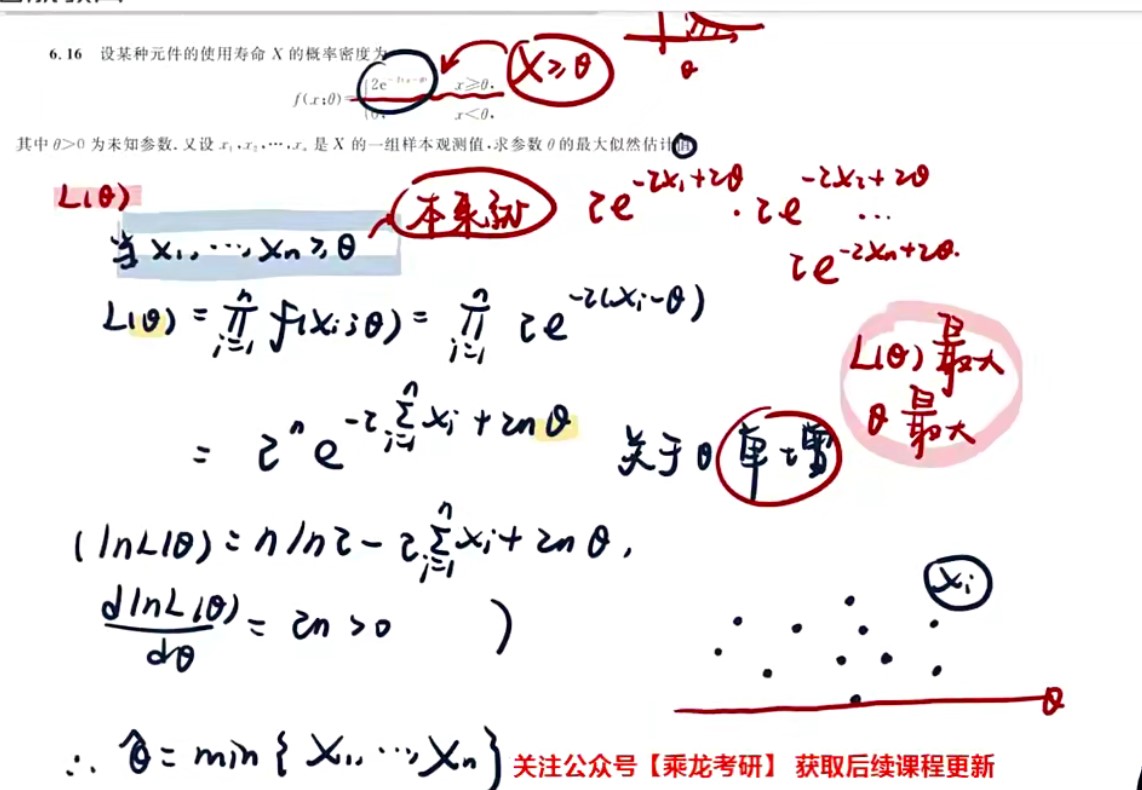 6.16 设某种元件的使用寿命 X 的概率密度为
X≥θ
θ
f(x;θ)= 2e^{-2(x-θ)}, x≥θ,
0, x<θ,
其中 θ>0 为未知参数.又设 x₁,x₂,…,xₙ 是 X 的一组样本观测值,求参数 θ 的最大似然估计值
L(θ)
2e^{-2x₁+2θ} · 2e^{-2x₂+2θ} …
2e^{-2xₙ+2θ}.
当 x₁, …, xₙ ≥ θ
L(θ) = ∏_{i=1}^{n} f(xᵢ;θ) = ∏_{i=1}^{n} 2e^{-2(xᵢ-θ)}
L(θ)最大
θ最大
= 2ⁿ e^{-2∑_{i=1}^{n} xᵢ + 2nθ} 关于θ单增
(lnL(θ) = n ln2 - 2∑_{i=1}^{n} xᵢ + 2nθ,
xᵢ
dlnL(θ)/dθ = 2n > 0 )
θ
∴ θ̂ = min{ x₁, …, xₙ }
关注公众号【乘龙考研】 获取后续课程更新